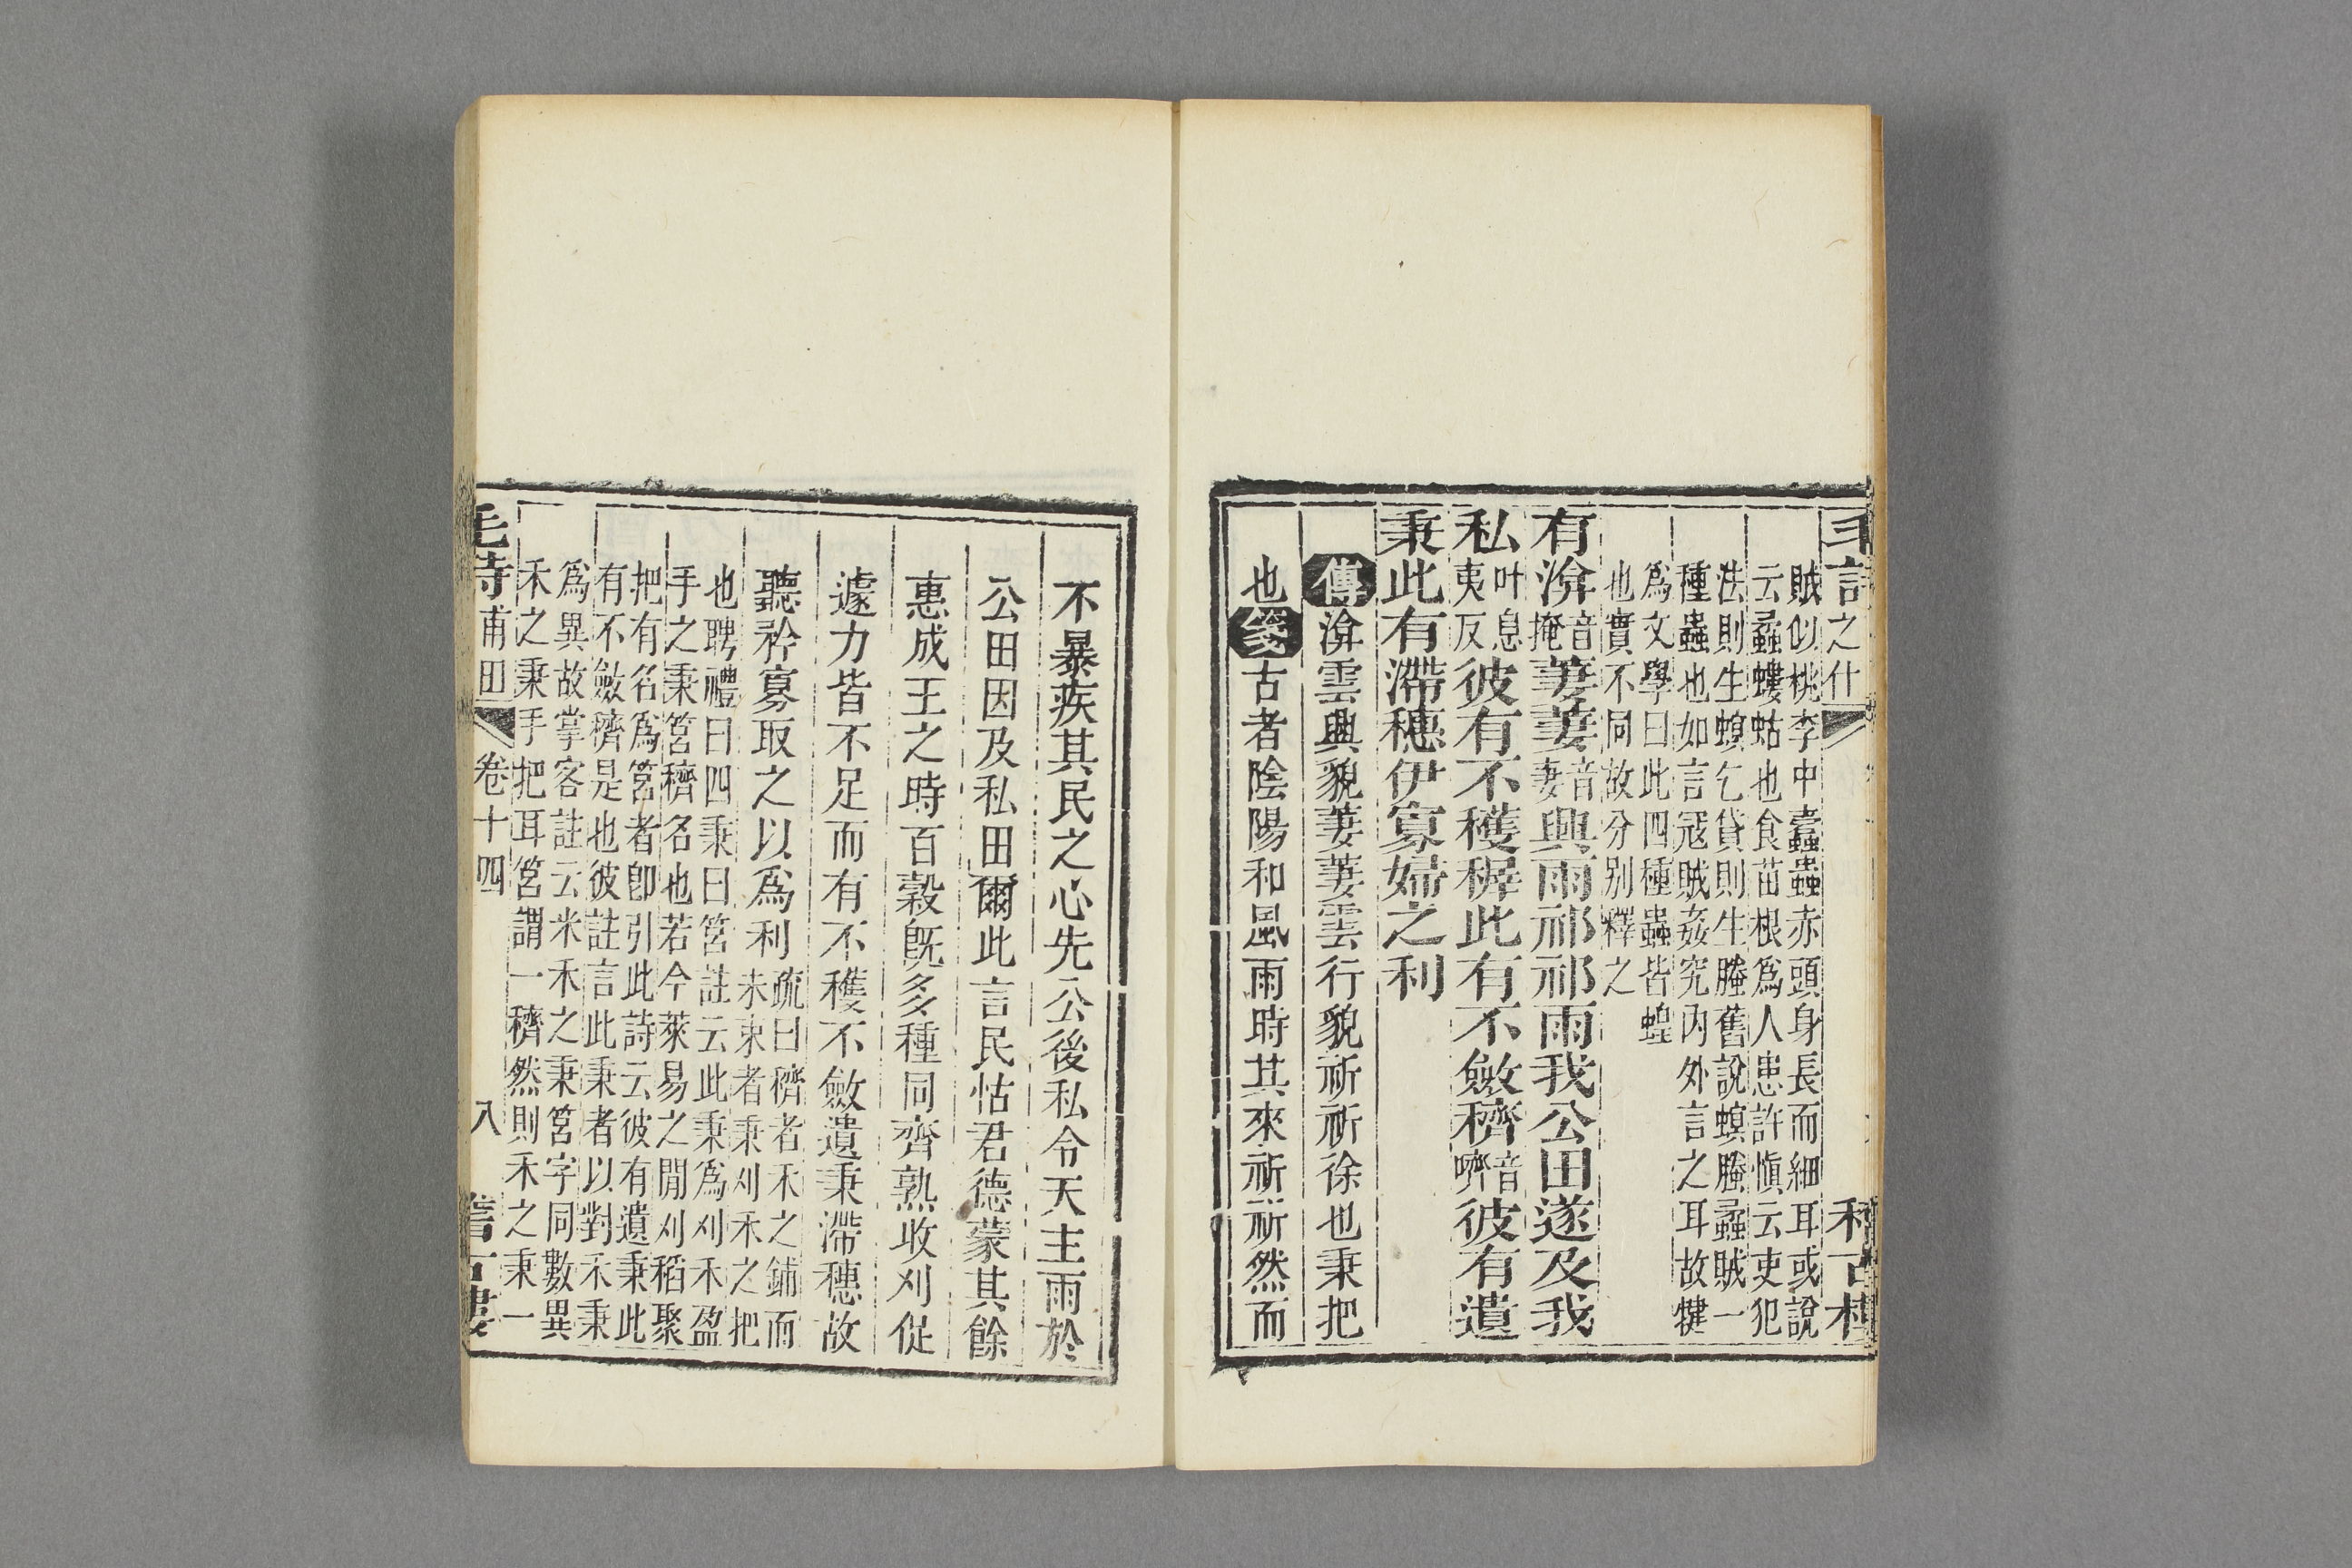 賊似桃李中蠹蟲赤頭身長而細耳或說
云蟊螻蛄也食苗根爲人患許愼云吏犯
法則生螟乞貸則生䘌舊說螟螣蟊賊一
種蟲也如言寇賊姦宄内外言之耳故犍
爲文學曰此四種蟲皆蝗
也實不同故分別釋之
有渰音掩萋萋音妻興雨祁祁雨我公田遂及我
私叶息夷反彼有不穫穉此有不斂穧音嚌彼有遺
秉此有滯穗伊寡婦之利
傳渰雲興貌萋萋雲行貌祈祈徐也秉把
也箋古者陰陽和風雨時其來祈祈然而
不暴疾其民之心先公後私令天主雨於
公田因及私田爾此言民怙君德蒙其餘
惠成王之時百穀旣多種同齊孰收刈促
遽力皆不足而有不穫不斂遺秉滯穗故
聽矜寡取之以爲利疏曰穧者禾之鋪而未束者秉刈禾之把
也聘禮曰四秉曰筥註云此秉爲刈禾盈
手之秉筥穧名也若今萊易之閒刈稻聚
把有名爲筥者卽引此詩云彼有遺秉此
有不斂穧是也彼註言此秉者以對禾秉
爲異故掌客註云米禾之秉筥字同數異
禾之秉手把耳筥謂一穧然則禾之秉一
毛詩甫田 卷十四 八